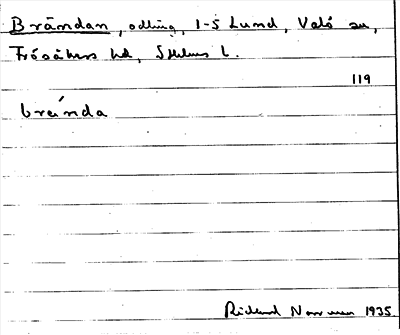 Brāndan, odling, 1-5 Lund, Valö sn,
Frösåkers hd, Sthlms l.
119
brā́nda
Rickard Norrman 1935.